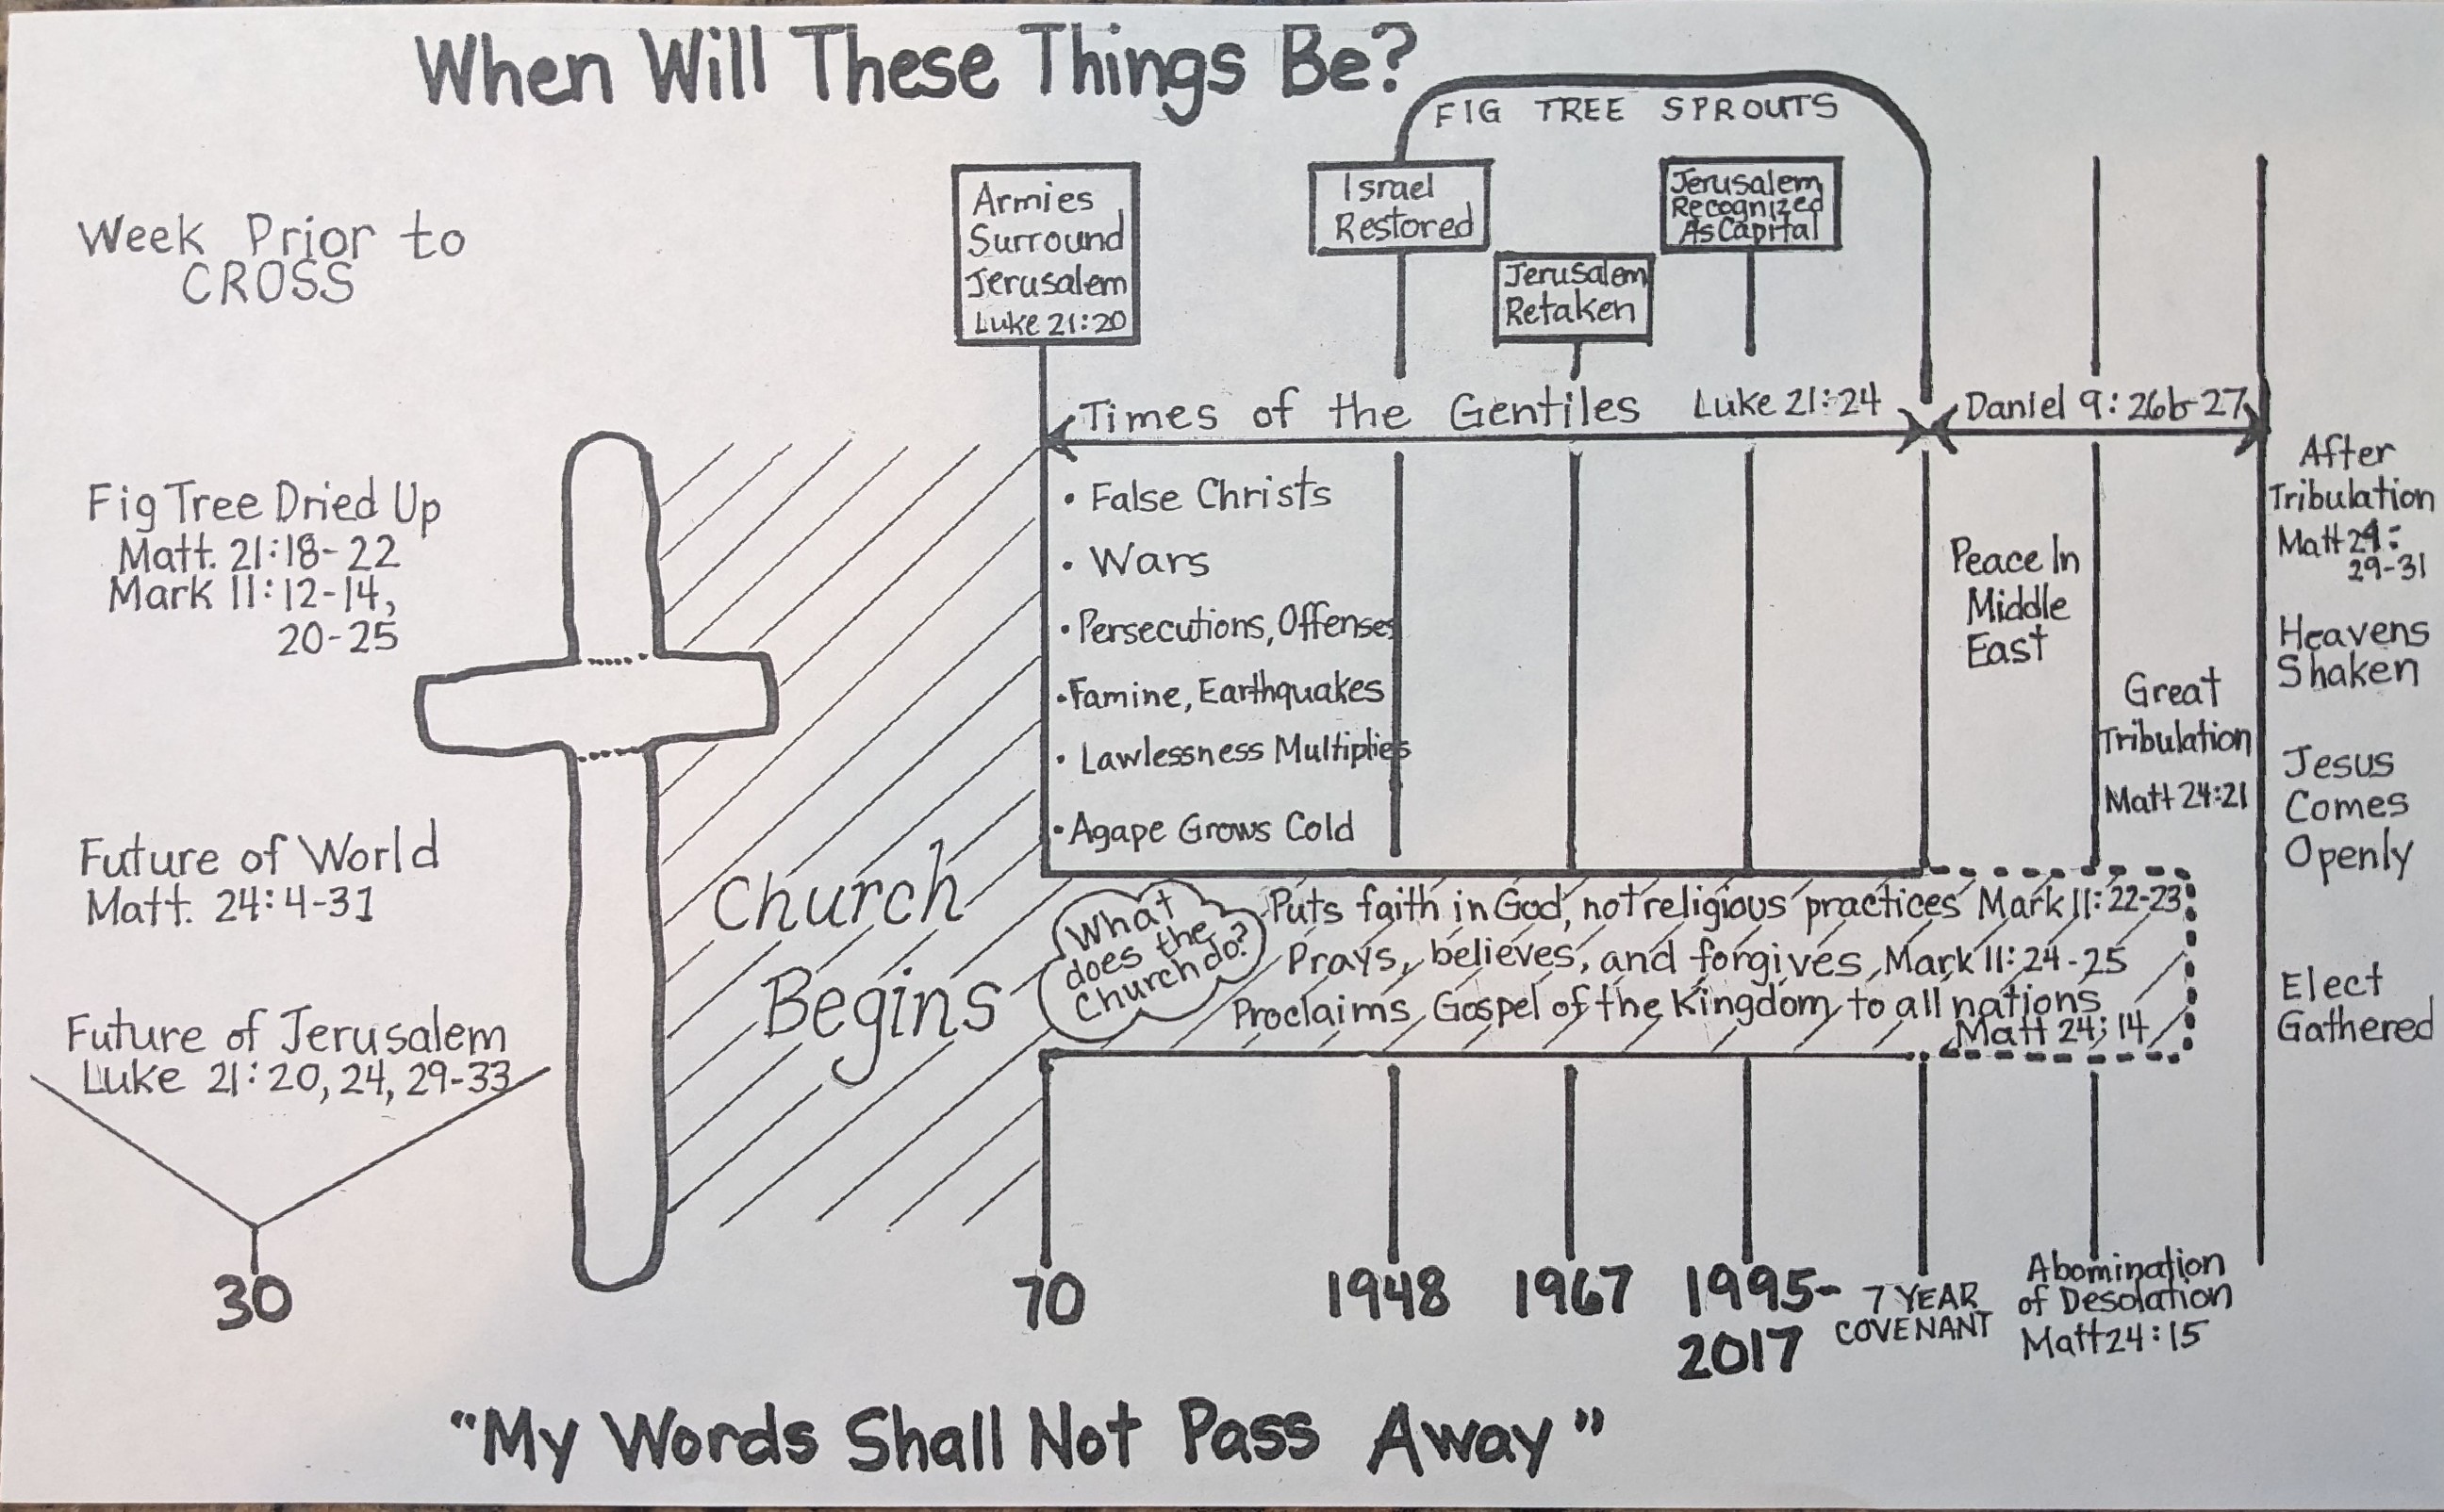 When Will These Things Be?
FIG TREE SPROUTS
Week Prior to
CROSS
Armies
Surround
Jerusalem
Luke 21:20
Israel
Restored
Jerusalem
Retaken
Jerusalem
Recognized
As Capital
Times of the Gentiles Luke 21:24
Daniel 9:26b-27
Fig Tree Dried Up
Matt. 21:18-22
Mark 11:12-14,
20-25
Future of World
Matt. 24:4-31
Future of Jerusalem
Luke 21:20, 24, 29-33
Church
Begins
• False Christs
• Wars
• Persecutions, Offenses
• Famine, Earthquakes
• Lawlessness Multiplies
• Agape Grows Cold
Peace In
Middle
East
Great
Tribulation
Matt 24:21
After
Tribulation
Matt 24:
29-31
Heavens
Shaken
Jesus
Comes
Openly
Elect
Gathered
What
does the
Church do?
Puts faith in God, not religious practices Mark 11:22-23
Prays, believes, and forgives, Mark 11:24-25
Proclaims Gospel of the Kingdom to all nations
Matt 24:14
30
70
1948
1967
1995-
2017
7 YEAR
COVENANT
Abomination
of Desolation
Matt 24:15
"My Words Shall Not Pass Away"